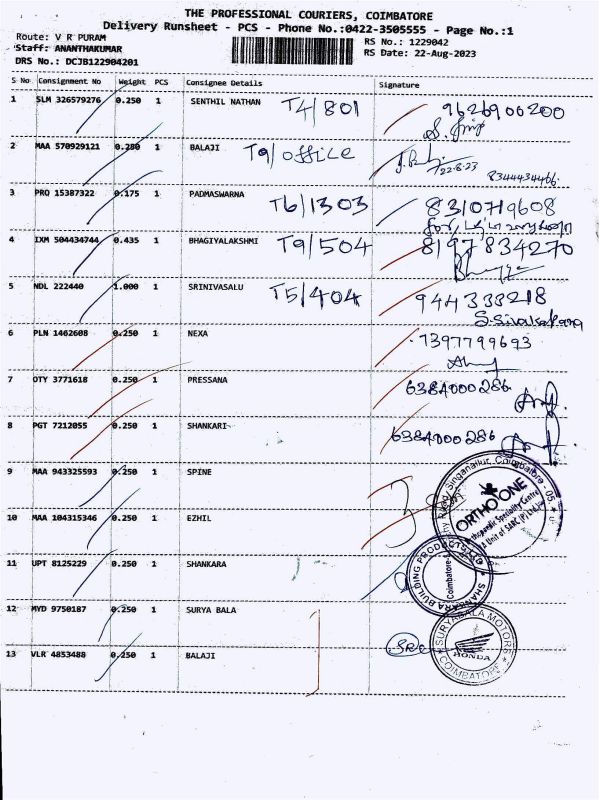 THE PROFESSIONAL COURIERS, COIMBATORE
Delivery Runsheet - PCS - Phone No.:0422-3505555 - Page No.:1
Route: V R PURAM
Staff: ANANTHAKUMAR
DRS No.: DCJB122904201
RS No.: 1229042
RS Date: 22-Aug-2023
S No Consignment No Weight PCS Consignee Details Signature
1 SLM 326579276 0.250 1 SENTHIL NATHAN T4/801 9626906200
2 MAA 570929121 0.280 1 BALAJI T9/office 22-8-23 8344434466
3 PRO 15387322 0.175 1 PADMASWARNA T6/1303 8310719608
4 IXM 504434744 0.435 1 BHAGIYALAKSHMI T9/504 8197834270
5 NDL 222440 1.000 1 SRINIVASALU T5/404 944333218
6 PLN 1462608 0.250 1 NEXA 7397799693
7 OTY 3771618 0.250 1 PRESSANA 6384000286
8 PGT 7212055 0.250 1 SHANKARI 6384000286
9 MAA 943325593 0.250 1 SPINE
10 MAA 104315346 0.250 1 EZHIL
11 UPT 8125229 0.250 1 SHANKARA
12 MYD 9750187 0.250 1 SURYA BALA
13 VLR 4853488 0.250 1 BALAJI
Singanallur, Coimbatore - 05.
ORTHO ONE
Orthopaedic Speciality Centre
A Unit of SARC (P) Ltd.
SHANKARA BUILDING PRODUCTS LTD
Coimbatore
SURYABALA MOTORS
HONDA
COIMBATORE